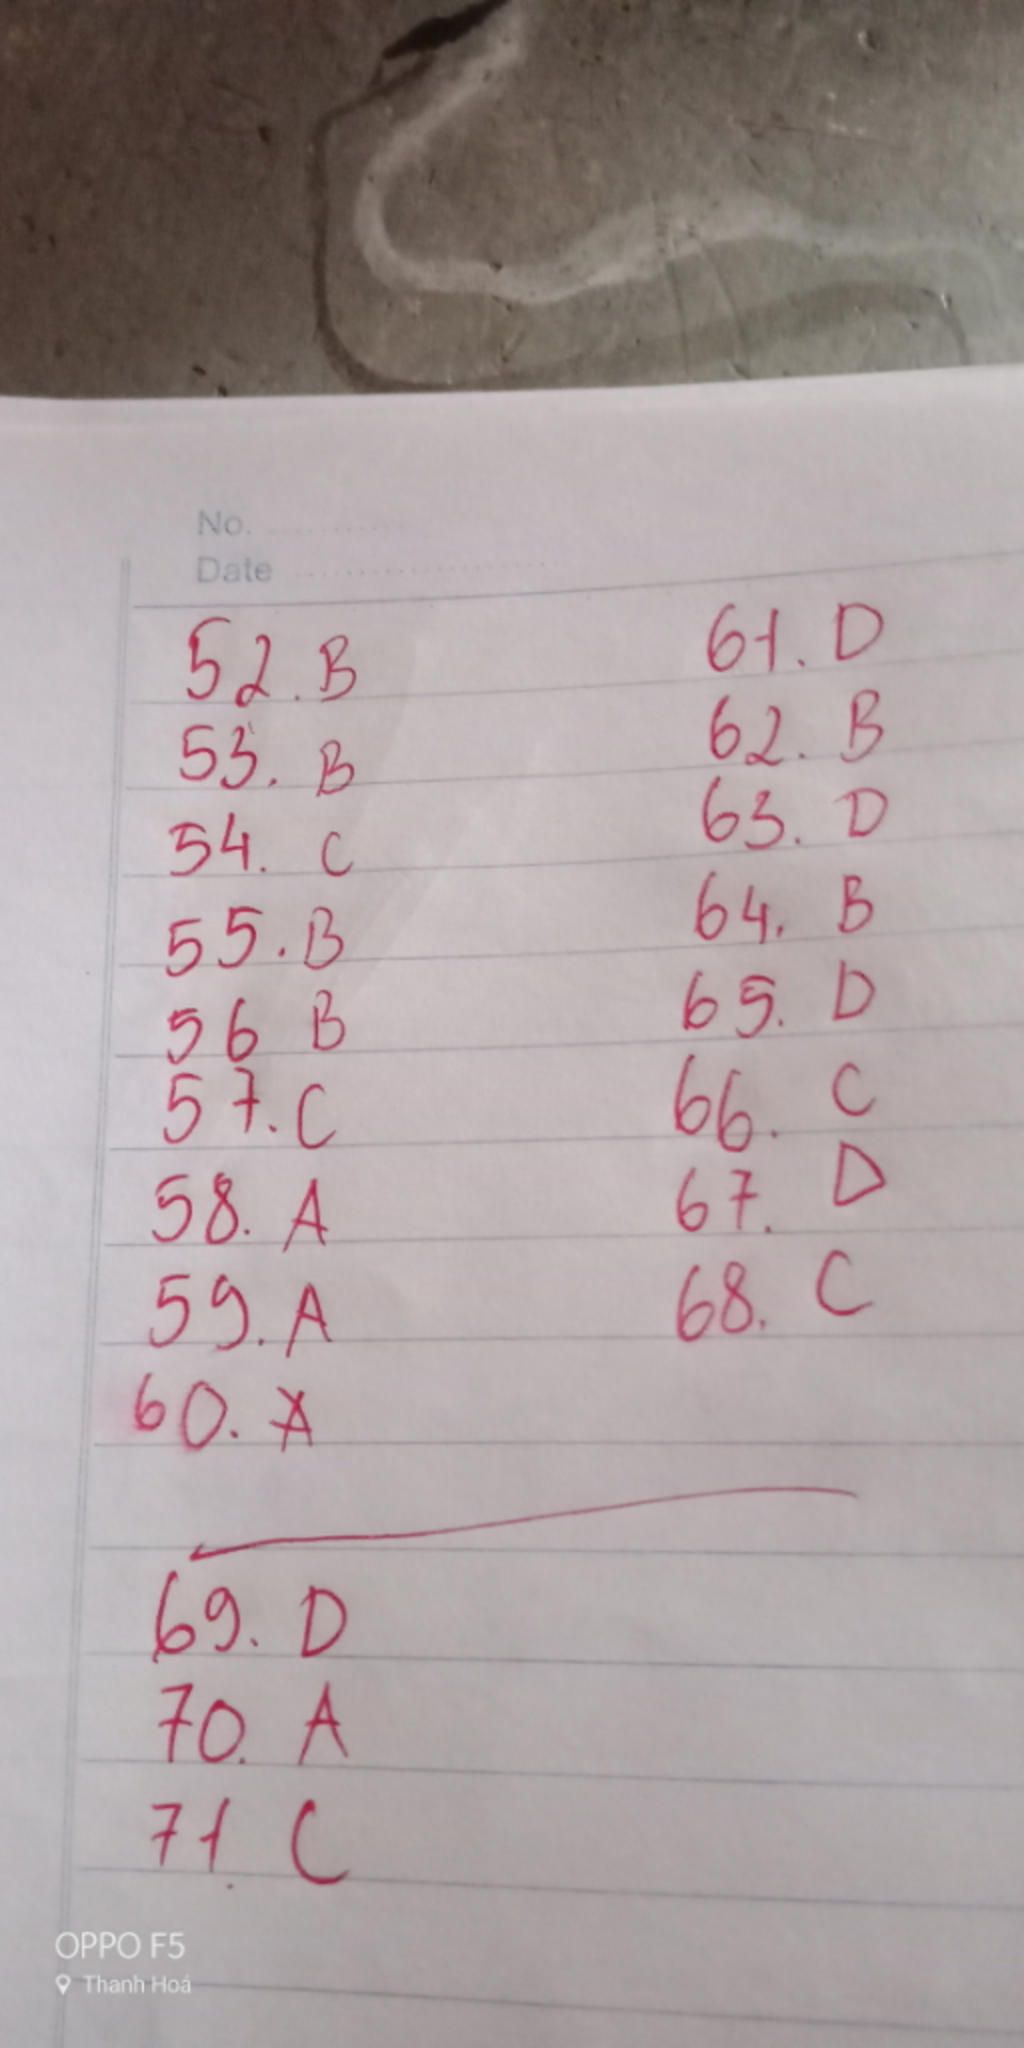 No. ............
Date ....................
52. B
53. B
54. C
55. B
56 B
57. C
58. A
59. A
60. A
61. D
62. B
63. D
64. B
65. D
66. C
67. D
68. C
69. D
70. A
71. C
OPPO F5
Thanh Hoá